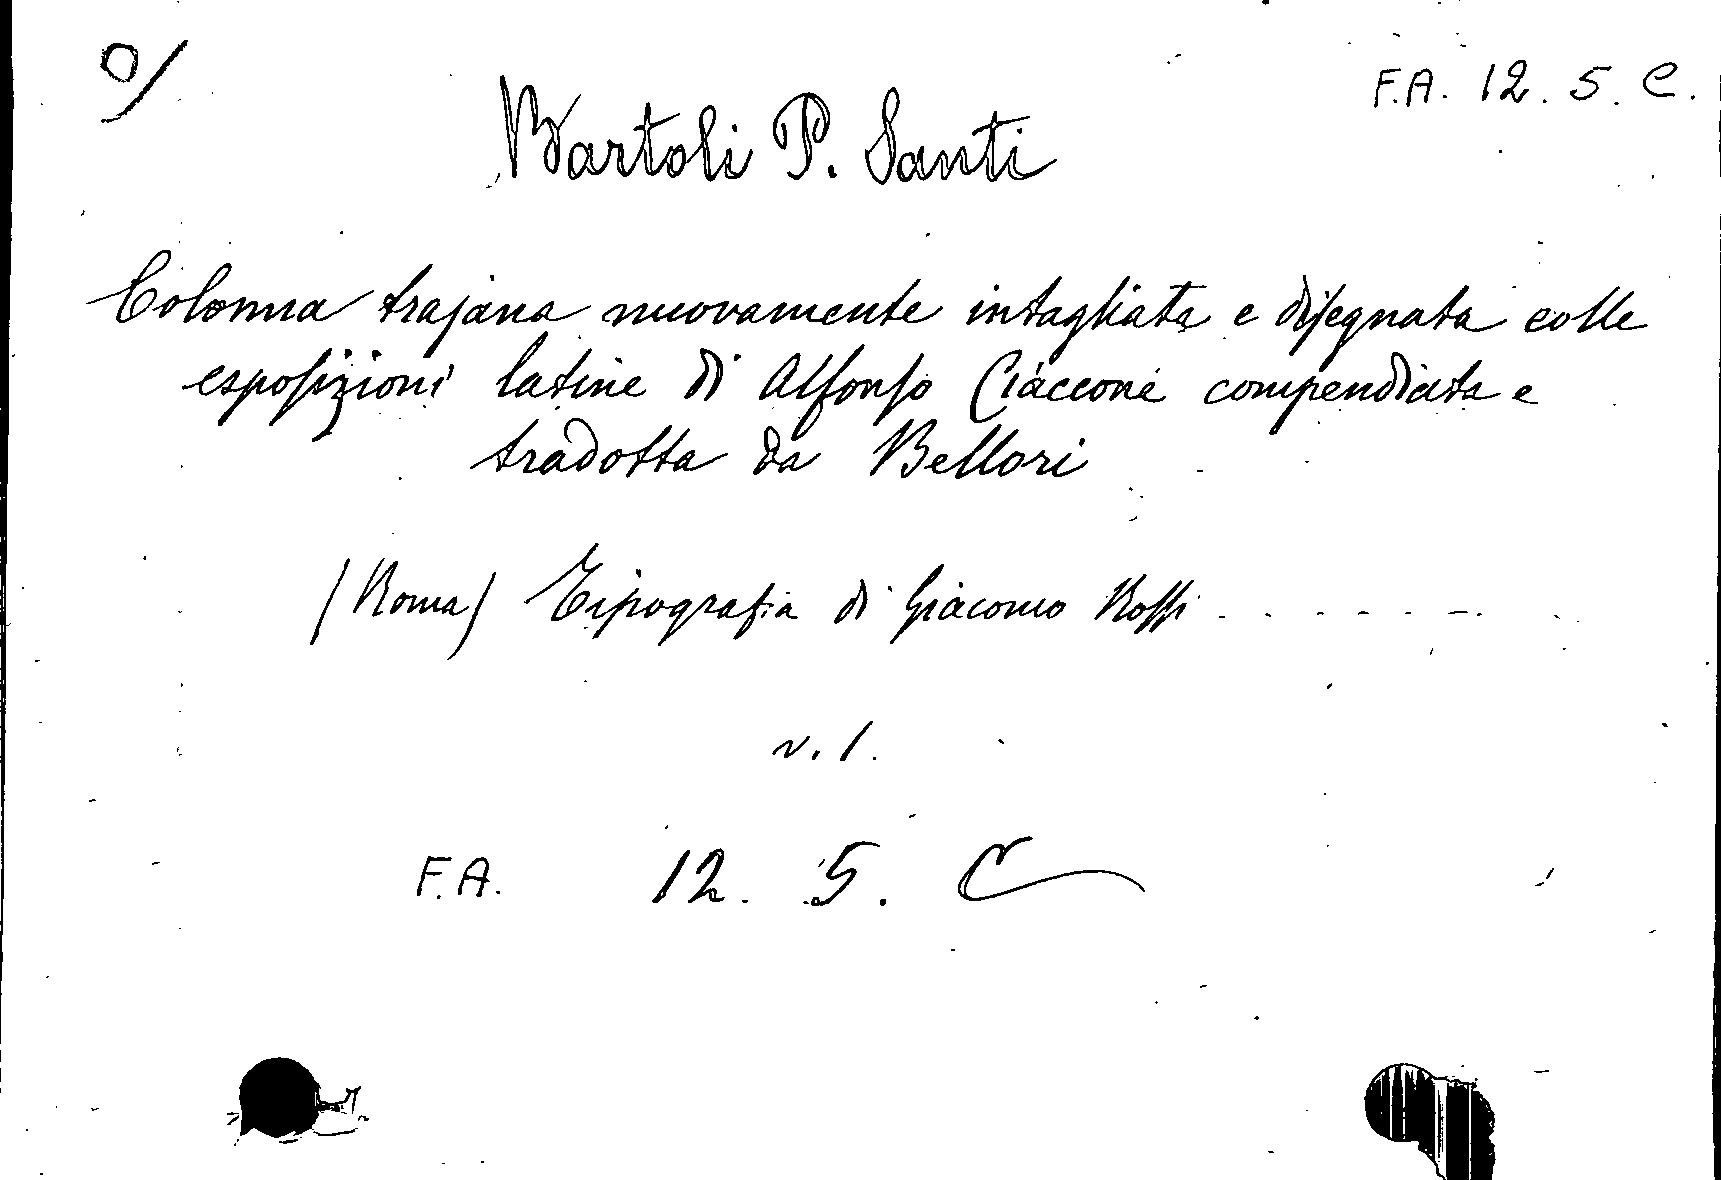 0/
F.A. 12. 5. C.
Bartoli P. Santi
Colonna trajana nuovamente intagliata e disegnata colle
esposizioni latine di Alfonso Ciaccone compendiata e
tradotta da Bellori
(Roma) Tipografia di Giacomo Rossi . . . . . . .
v. 1.
F.A. 12. 5. C